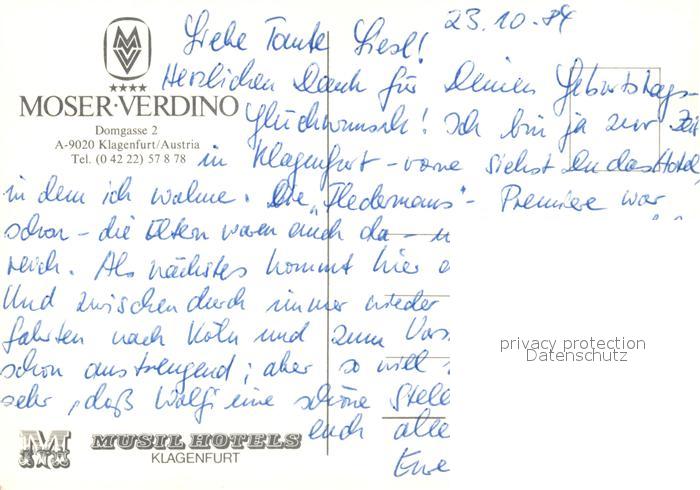 23.10.84
Liebe Tante Liesl!
Herzlichen Dank für Deinen Geburtstags-
MOSER·VERDINO
Glückwunsch! Ich bin ja zur Zeit
Domgasse 2
A-9020 Klagenfurt/Austria
Tel. (0 42 22) 57 8 78
in Klagenfurt - vorne siehst Du das Hotel,
in dem ich wohne. Die „Fledermaus"- Premiere war
schon - die Eltern waren auch da - u
reich. Als nächstes kommt hier
Und zwischendurch immer wieder
fahrten nach Köln und zum
privacy protection
Datenschutz
schon anstrengend; aber so will
sehr, daß Wolfi eine schöne Stell
euch alle
Eure
MUSIL HOTELS
KLAGENFURT